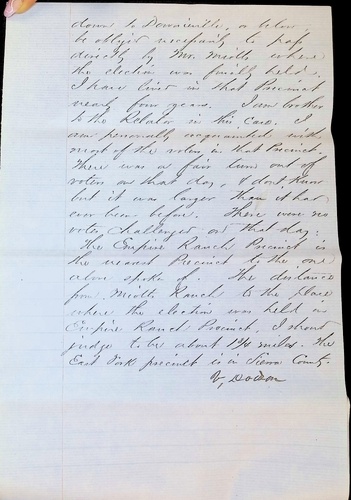 down to Downieville or below,
be obliged necessarily to pass
directly by Mr. Meotts where
the election was finally held.
I have lived in that Precinct
nearly four years. I am brother
to the Relator in this case. I
am personally acquainted with
most of the voters in that Precinct.
There was a fair turn out of
voters on that day, I don't know
but it was larger than it had
ever been before. There were no
votes challenged on that day.
The Empire Ranch Precinct is
the nearest Precinct to the one
above spoke of. The distance
from Meotts Ranch to the place
where the election was held in
Empire Ranch Precinct, I should
judge to be about 1¼ miles. The
East Fork precinct is in Sierra County.
V, Dodson